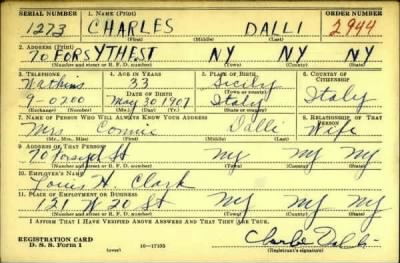 SERIAL NUMBER 1. NAME (Print) ORDER NUMBER
1273 CHARLES DALLI 2944
(First) (Middle) (Last)
2. ADDRESS (Print)
70 FORSYTHE ST NY NY NY
(Number and street or R. F. D. number) (Town) (County) (State)
3. TELEPHONE 4. AGE IN YEARS 5. PLACE OF BIRTH 6. COUNTRY OF CITIZENSHIP
Watkins 33 Sicily
DATE OF BIRTH
9-0700 May 30 1907 Italy Italy
(Exchange) (Number) (Mo.) (Day) (Yr.) (State or country)
7. NAME OF PERSON WHO WILL ALWAYS KNOW YOUR ADDRESS 8. RELATIONSHIP OF THAT PERSON
Mrs Connie Dalli Wife
(Mr., Mrs., Miss) (First) (Middle) (Last)
9. ADDRESS OF THAT PERSON
70 Forsyth St NY NY NY
(Number and street or R. F. D. number) (Town) (County) (State)
10. EMPLOYER'S NAME
Louis H. Clark
11. PLACE OF EMPLOYMENT OR BUSINESS
121 W 20 St NY NY NY
(Number and street or R. F. D. number) (Town) (County) (State)
I AFFIRM THAT I HAVE VERIFIED ABOVE ANSWERS AND THAT THEY ARE TRUE.
REGISTRATION CARD
D. S. S. Form 1 (over) 16—17105 Charlie Dalli
(Registrant's signature)